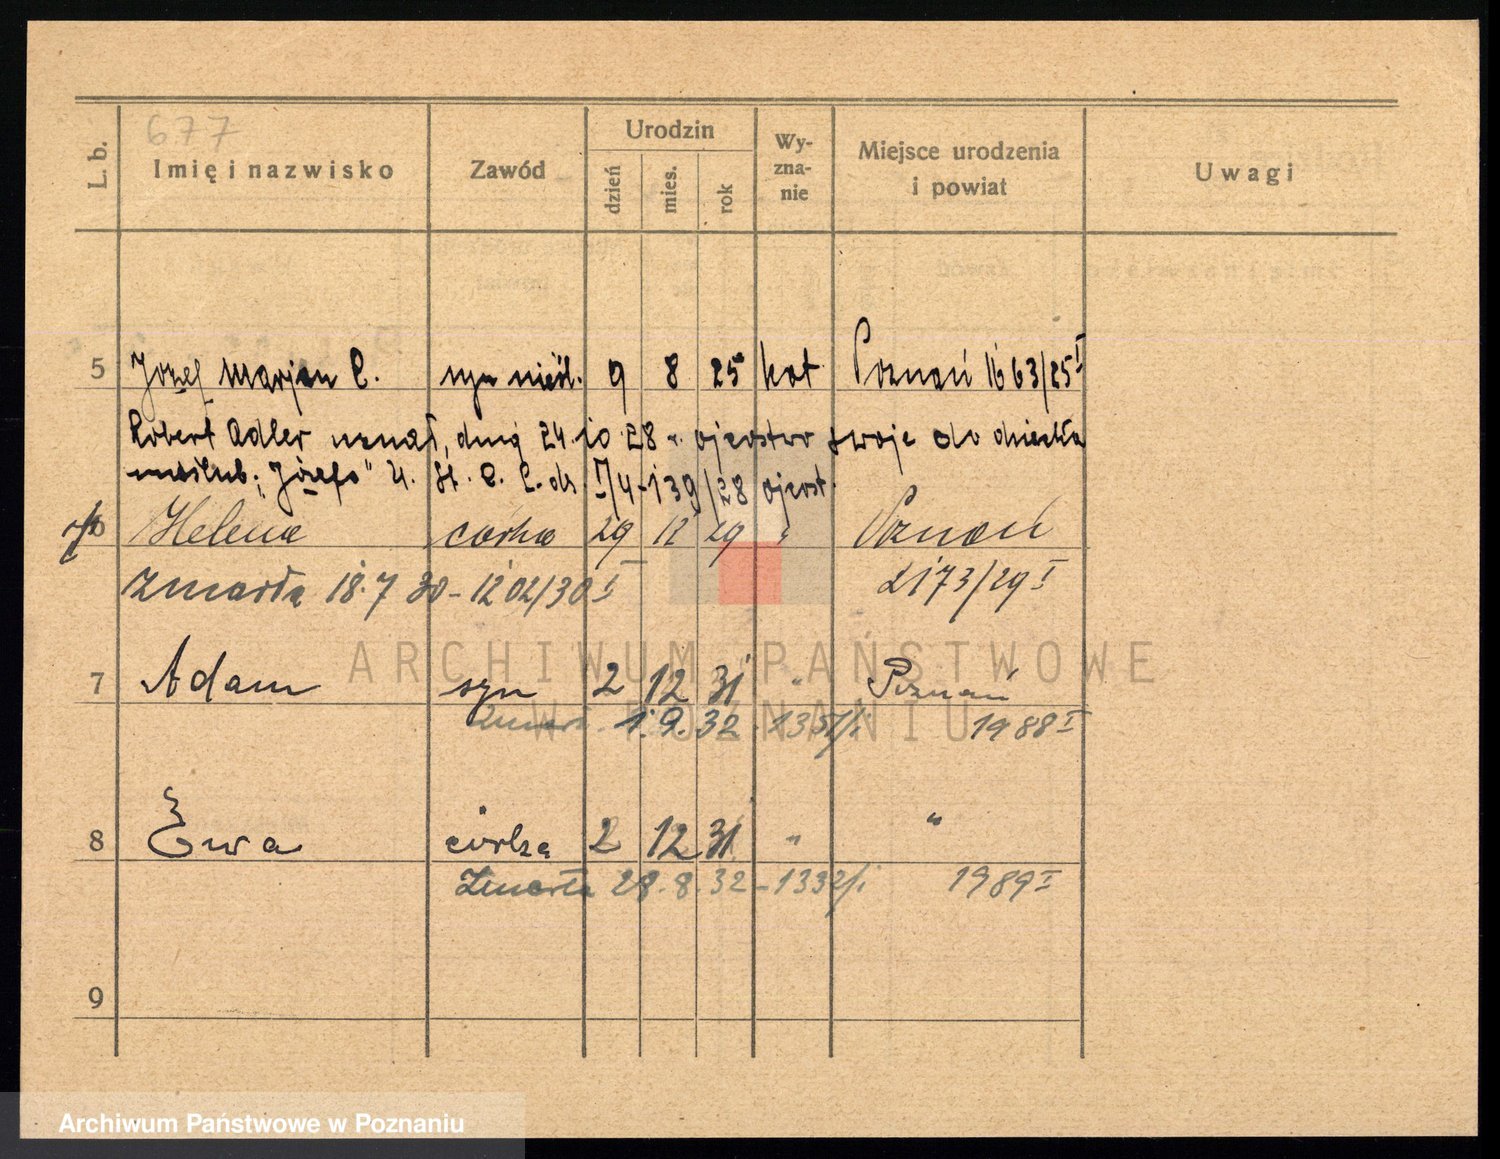 677
L. b.
Imię i nazwisko
Zawód
Urodzin
dzień
mies.
rok
Wy-
zna-
nie
Miejsce urodzenia
i powiat
Uwagi
5 Józef Marjan C. syn nieśl. 9 8 25 kat Poznań 1663/25 I
Robert Adler uznał, dnia 24.10.28 r. ojcostwo swoje do dziecka
nieślub. „Józefa" U. St. C. L. dz. I/4-139/28 ojcost.
6 Helena córka 29 12 29 " Poznań
zmarła 18.7 30 - 1202/30 I 2173/29 I
7 Adam syn 2 12 31 " Poznań
Zmarł 1.9.32 1988 I
8 Ewa córka 2 12 31 " "
Zmarła 28.8.32 - 1332/I 1989 I
9
ARCHIWUM PAŃSTWOWE
W POZNANIU
Archiwum Państwowe w Poznaniu